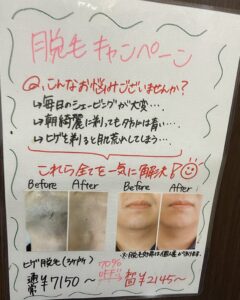 脱毛キャンペーン
Q.こんなお悩みございませんか?
→毎日のシェービングが大変….
→朝綺麗に剃っても夕方は青い….
→ヒゲを剃ると肌荒れしてしまう…
これら全てを一気に解決!
Before After Before After
※脱毛効果は個人差があります。
ヒゲ脱毛(3ヶ所)
通常¥7150〜 70%OFF 初回¥2145〜